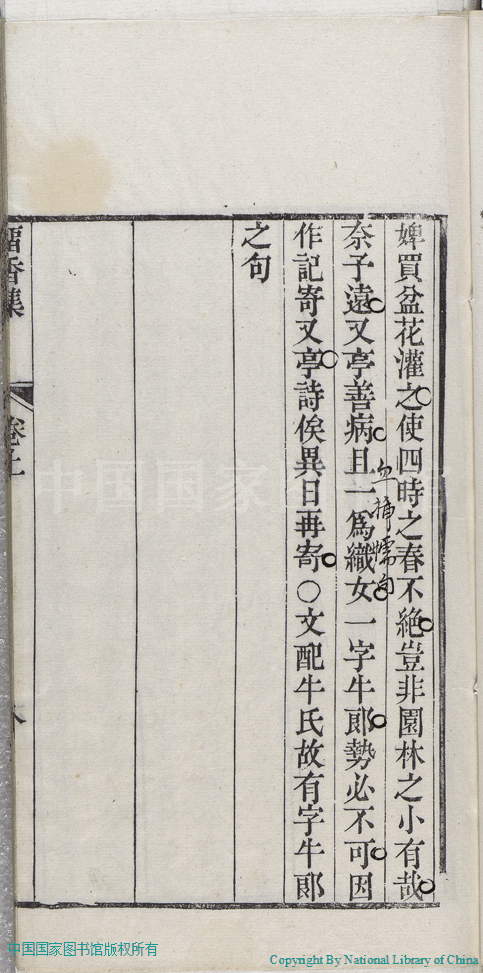 婢買盆花灌之使四時之春不絶豈非園林之小有哉
奈子遠又亭善病且一爲織女一字牛郎勢必不可因
作記寄又亭詩俟異日再寄○文配牛氏故有字牛郎
之句
香集
卷上
中国国家
中国国家图书馆版权所有
Copyright By National Library of China